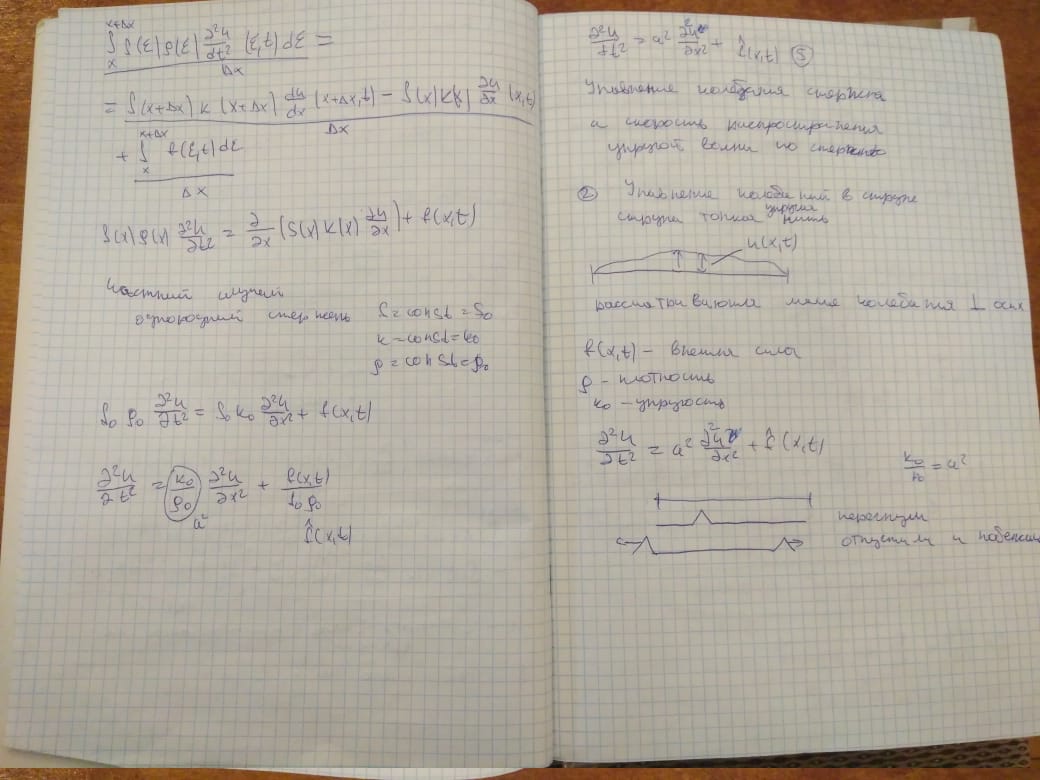 ∫_x^{x+Δx} S(ξ)ρ(ξ) ∂²u/∂t² (ξ,t) dξ / Δx =
= S(x+Δx) k (x+Δx) du/dx (x+Δx,t) − S(x) k(x) ∂u/∂x (x,t) / Δx
+ ∫_x^{x+Δx} f(ξ,t) dξ / Δx
S(x) ρ(x) ∂²u/∂t² = ∂/∂x (S(x) K(x) ∂u/∂x) + f(x,t)
Частный случай
однородный стержень S = const = S₀
k = const = k₀
ρ = const = ρ₀
S₀ ρ₀ ∂²u/∂t² = S₀ k₀ ∂²u/∂x² + f(x,t)
∂²u/∂t² = k₀/ρ₀ ∂²u/∂x² + f(x,t)/S₀ρ₀
a² f̂(x,t)
∂²u/∂t² = a² ∂²u/∂x² + f̂(x,t) (5)
Уравнение колебания стержня
a скорость распространения
упругой волны по стержню
② Уравнение колебаний в струне
струна тонкая упругая нить
u(x,t)
рассматриваются малые колебания ⊥ оси x
f(x,t) – внешняя сила
ρ – плотность
k₀ – упругость
∂²u/∂t² = a² ∂²u/∂x² + f̂(x,t)
k₀/ρ₀ = a²
отпустили и